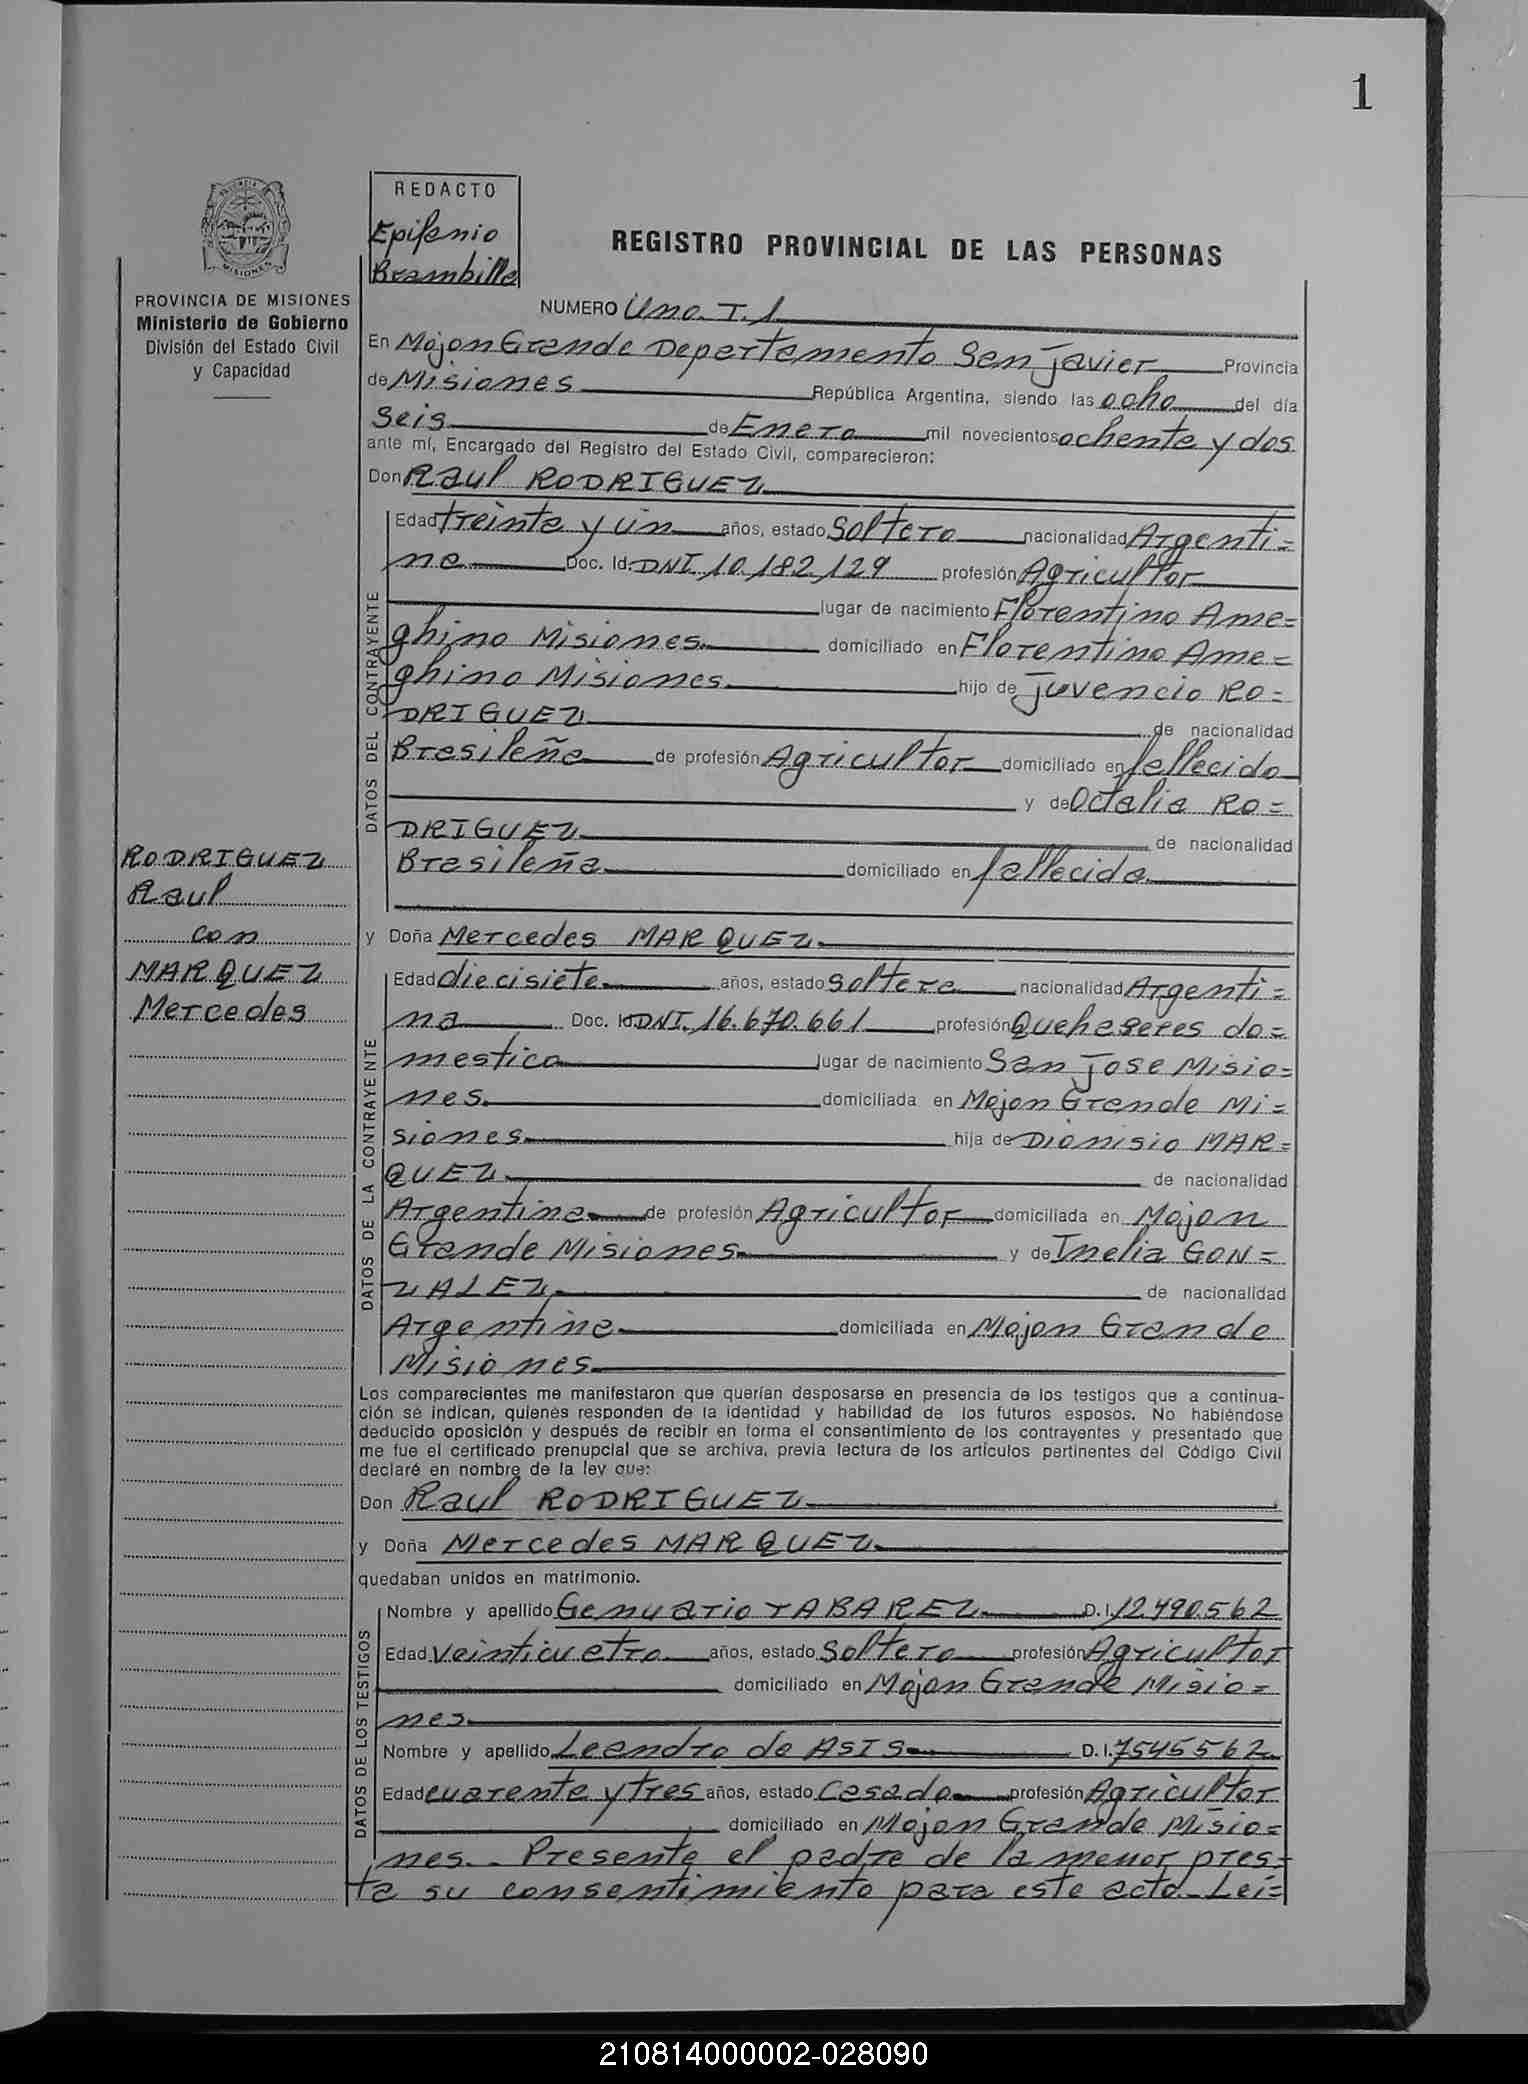 1
REDACTO
Epifanio
Brambilla
PROVINCIA DE MISIONES
Ministerio de Gobierno
División del Estado Civil
y Capacidad
REGISTRO PROVINCIAL DE LAS PERSONAS
NUMERO Uno. T. 1
En Mojon Grande Departamento San Javier Provincia
de Misiones República Argentina, siendo las ocho del día
Seis de Enero mil novecientos ochenta y dos
ante mí, Encargado del Registro del Estado Civil, comparecieron:
Don Raul RODRIGUEZ
DATOS DEL CONTRAYENTE
Edad treinta y un años, estado Soltero nacionalidad Argenti=
na Doc. Id. DNI. 10.182.129 profesión Agricultor
lugar de nacimiento Florentino Ame=
ghino Misiones domiciliado en Florentino Ame=
ghino Misiones hijo de Juvencio RO=
DRIGUEZ de nacionalidad
Brasileña de profesión Agricultor domiciliado en fallecido
y de Octalia RO=
DRIGUEZ de nacionalidad
Brasileña domiciliado en fallecida
RODRIGUEZ
Raul
con
MARQUEZ
Mercedes
y Doña Mercedes MARQUEZ
DATOS DE LA CONTRAYENTE
Edad diecisiete años, estado Soltera nacionalidad Argenti=
na Doc. Id DNI. 16.670.661 profesión Quehaseres do=
mestica lugar de nacimiento San Jose Misio=
nes. domiciliada en Mojon Grande Mi=
siones hija de Dionisio MAR=
QUEZ de nacionalidad
Argentina de profesión Agricultor domiciliada en Mojon
Grande Misiones y de Inelia GON=
ZALEZ de nacionalidad
Argentina domiciliada en Mojon Grande
Misiones
Los comparecientes me manifestaron que querían desposarse en presencia de los testigos que a continua-
ción se indican, quienes responden de la identidad y habilidad de los futuros esposos. No habiéndose
deducido oposición y después de recibir en forma el consentimiento de los contrayentes y presentado que
me fue el certificado prenupcial que se archiva, previa lectura de los artículos pertinentes del Código Civil
declaré en nombre de la ley que:
Don Raul RODRIGUEZ
y Doña Mercedes MARQUEZ
quedaban unidos en matrimonio.
DATOS DE LOS TESTIGOS
Nombre y apellido Genuario TABAREZ D.I. 12.490.562
Edad veinticuatro años, estado Soltero profesión Agricultor
domiciliado en Mojon Grande Misio=
nes
Nombre y apellido Leandro de ASIS D.I. 7545562
Edad cuarenta y tres años, estado Casado profesión Agricultor
domiciliado en Mojon Grande Misio=
nes.- Presente el padre de la menor pres=
ta su consentimiento para este acto.- Lei=
210814000002-028090